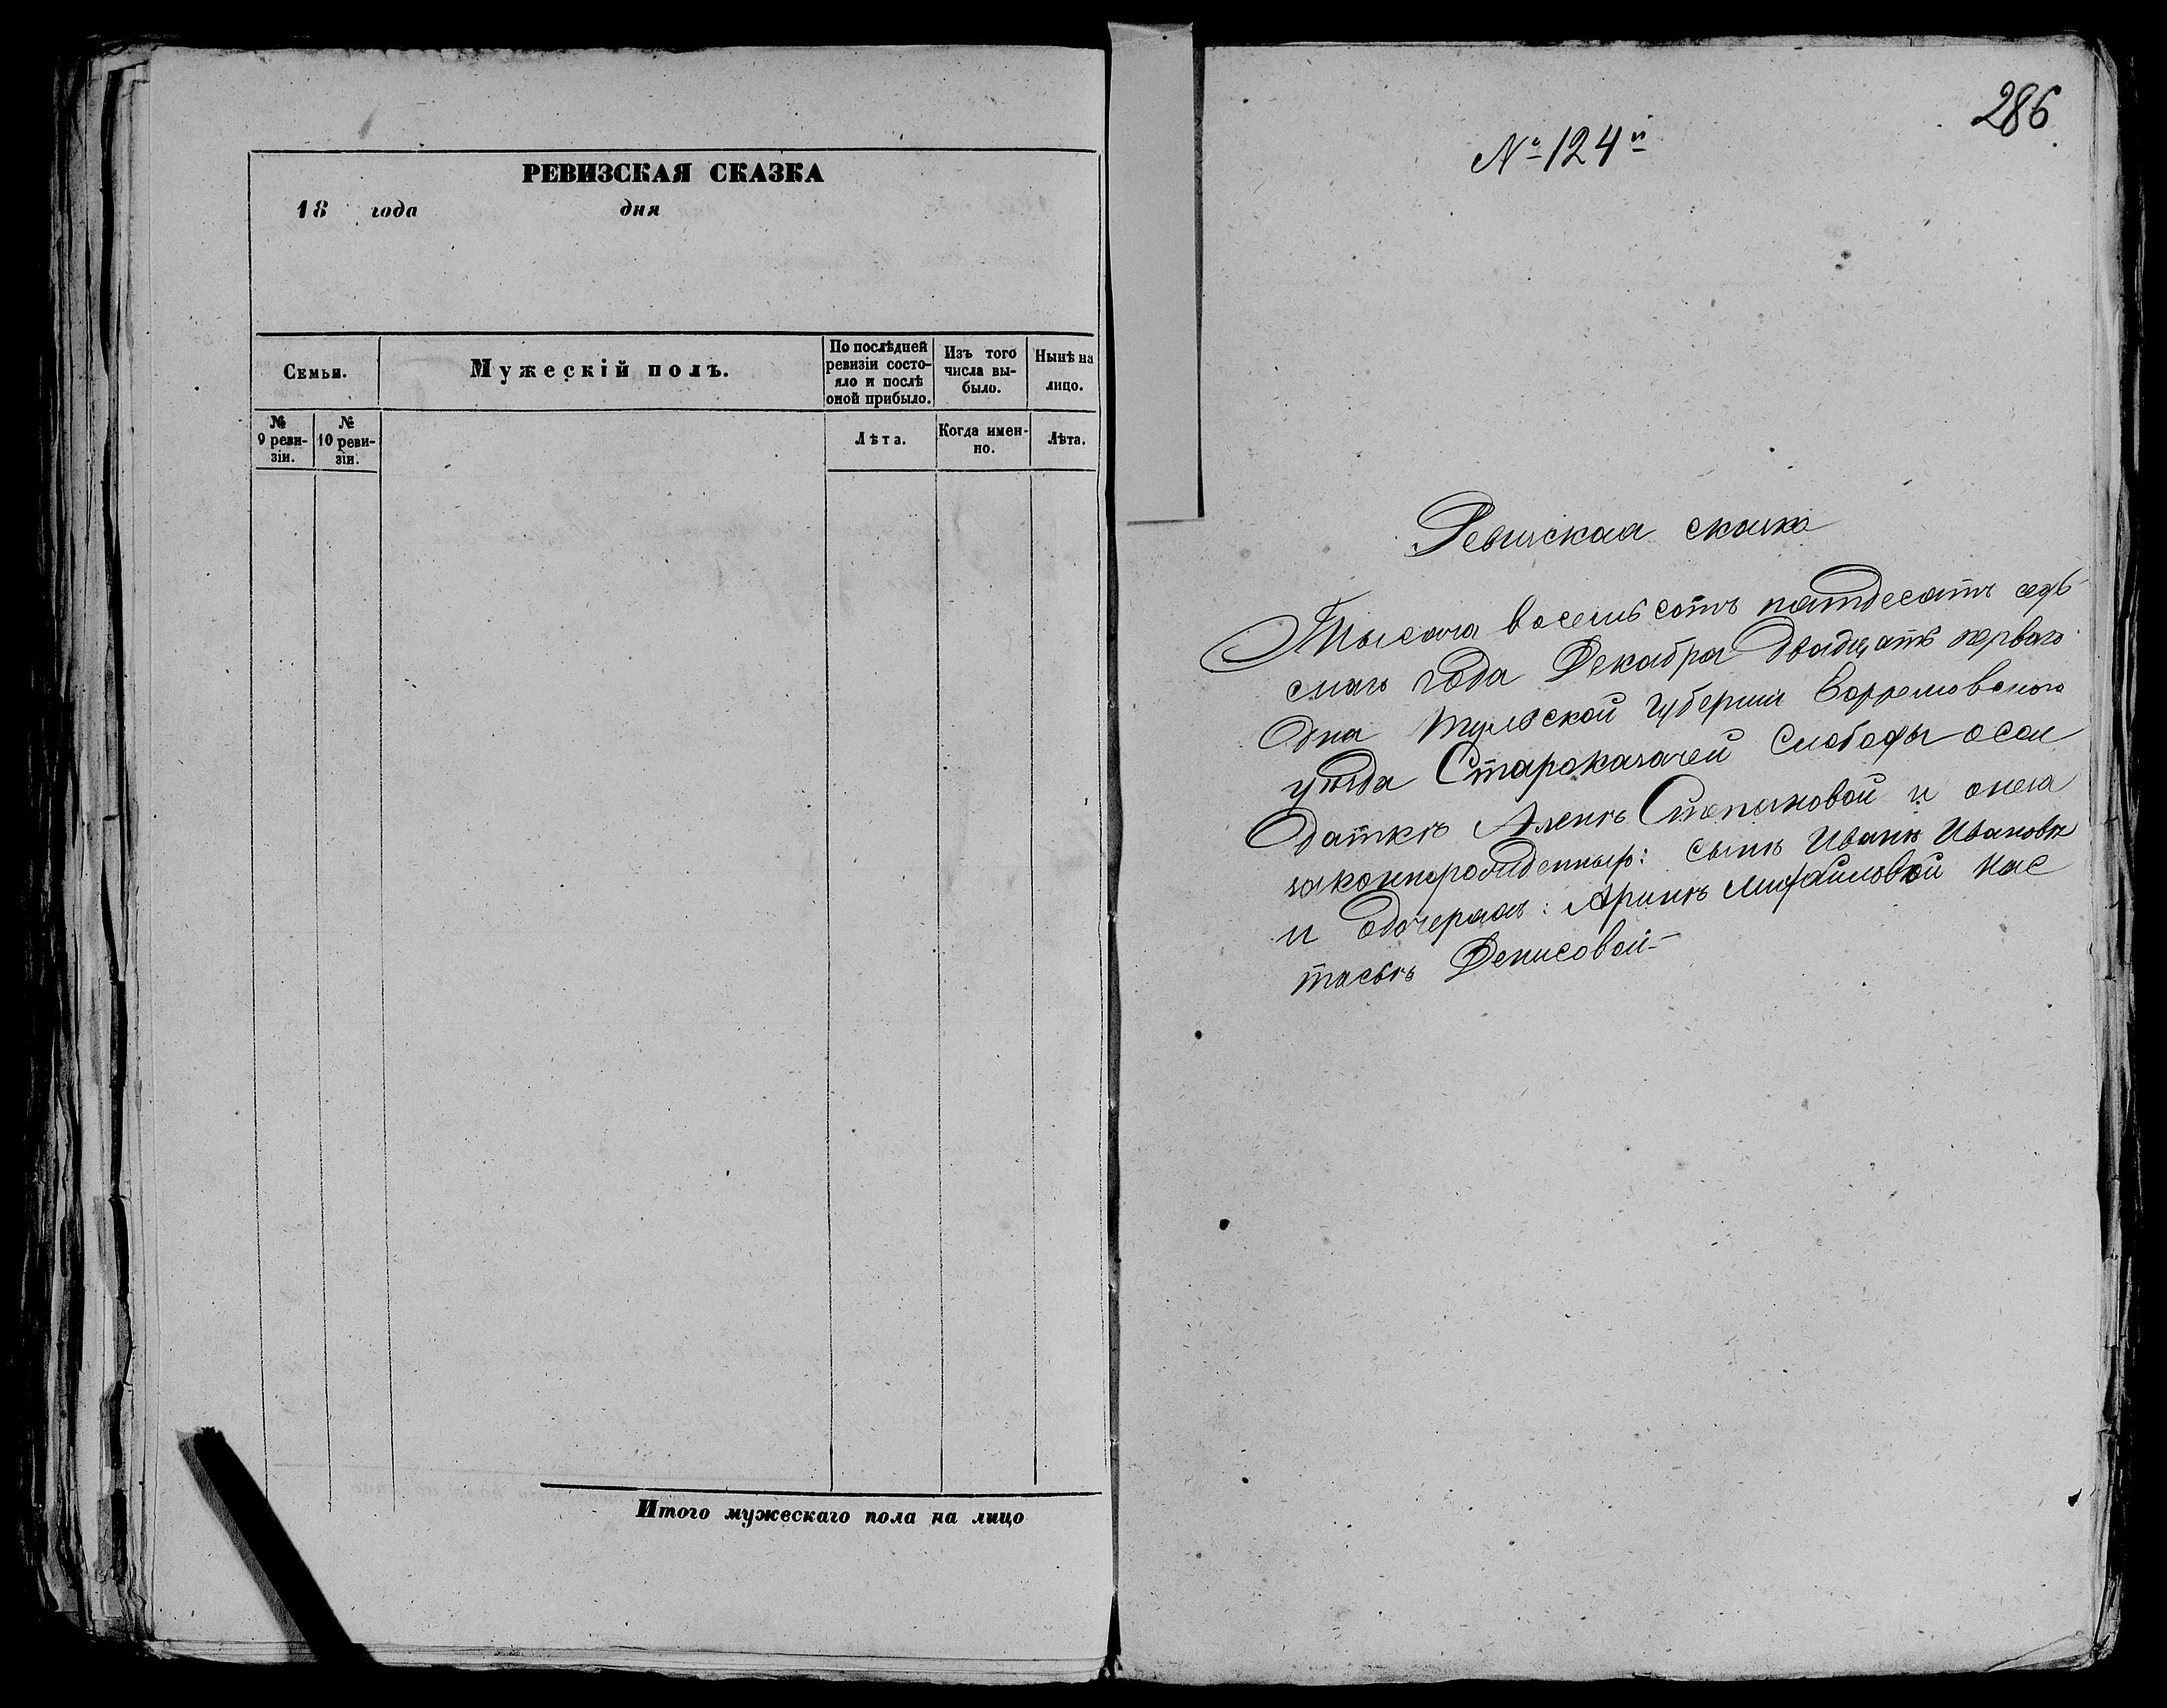 РЕВИЗСКАЯ СКАЗКА
18 года дня
Семьи.
Мужескій полъ.
По послѣдней
ревизіи состо-
яло и послѣ
оной прибыло.
Изъ того
числа вы-
было.
Нынѣ на
лицо.
№
9 реви-
зіи.
№
10 реви-
зіи.
Лѣта.
Когда имен-
но.
Лѣта.
Итого мужескаго пола на лицо
286
№ 124й
Ревизская сказка
Тысяча восемьсотъ пятдесятъ седь
маго года Декабря двадцать перваго
дня Тульской губерніи Ефремовскаго
уѣзда Староказачей Слободы о сол
даткѣ Аленѣ Степановой и онега
законнорожденныхъ: сынѣ Иванѣ Ивановѣ
и дочеряхъ: Аринѣ Михайловой Нас
тасьѣ Денисовой